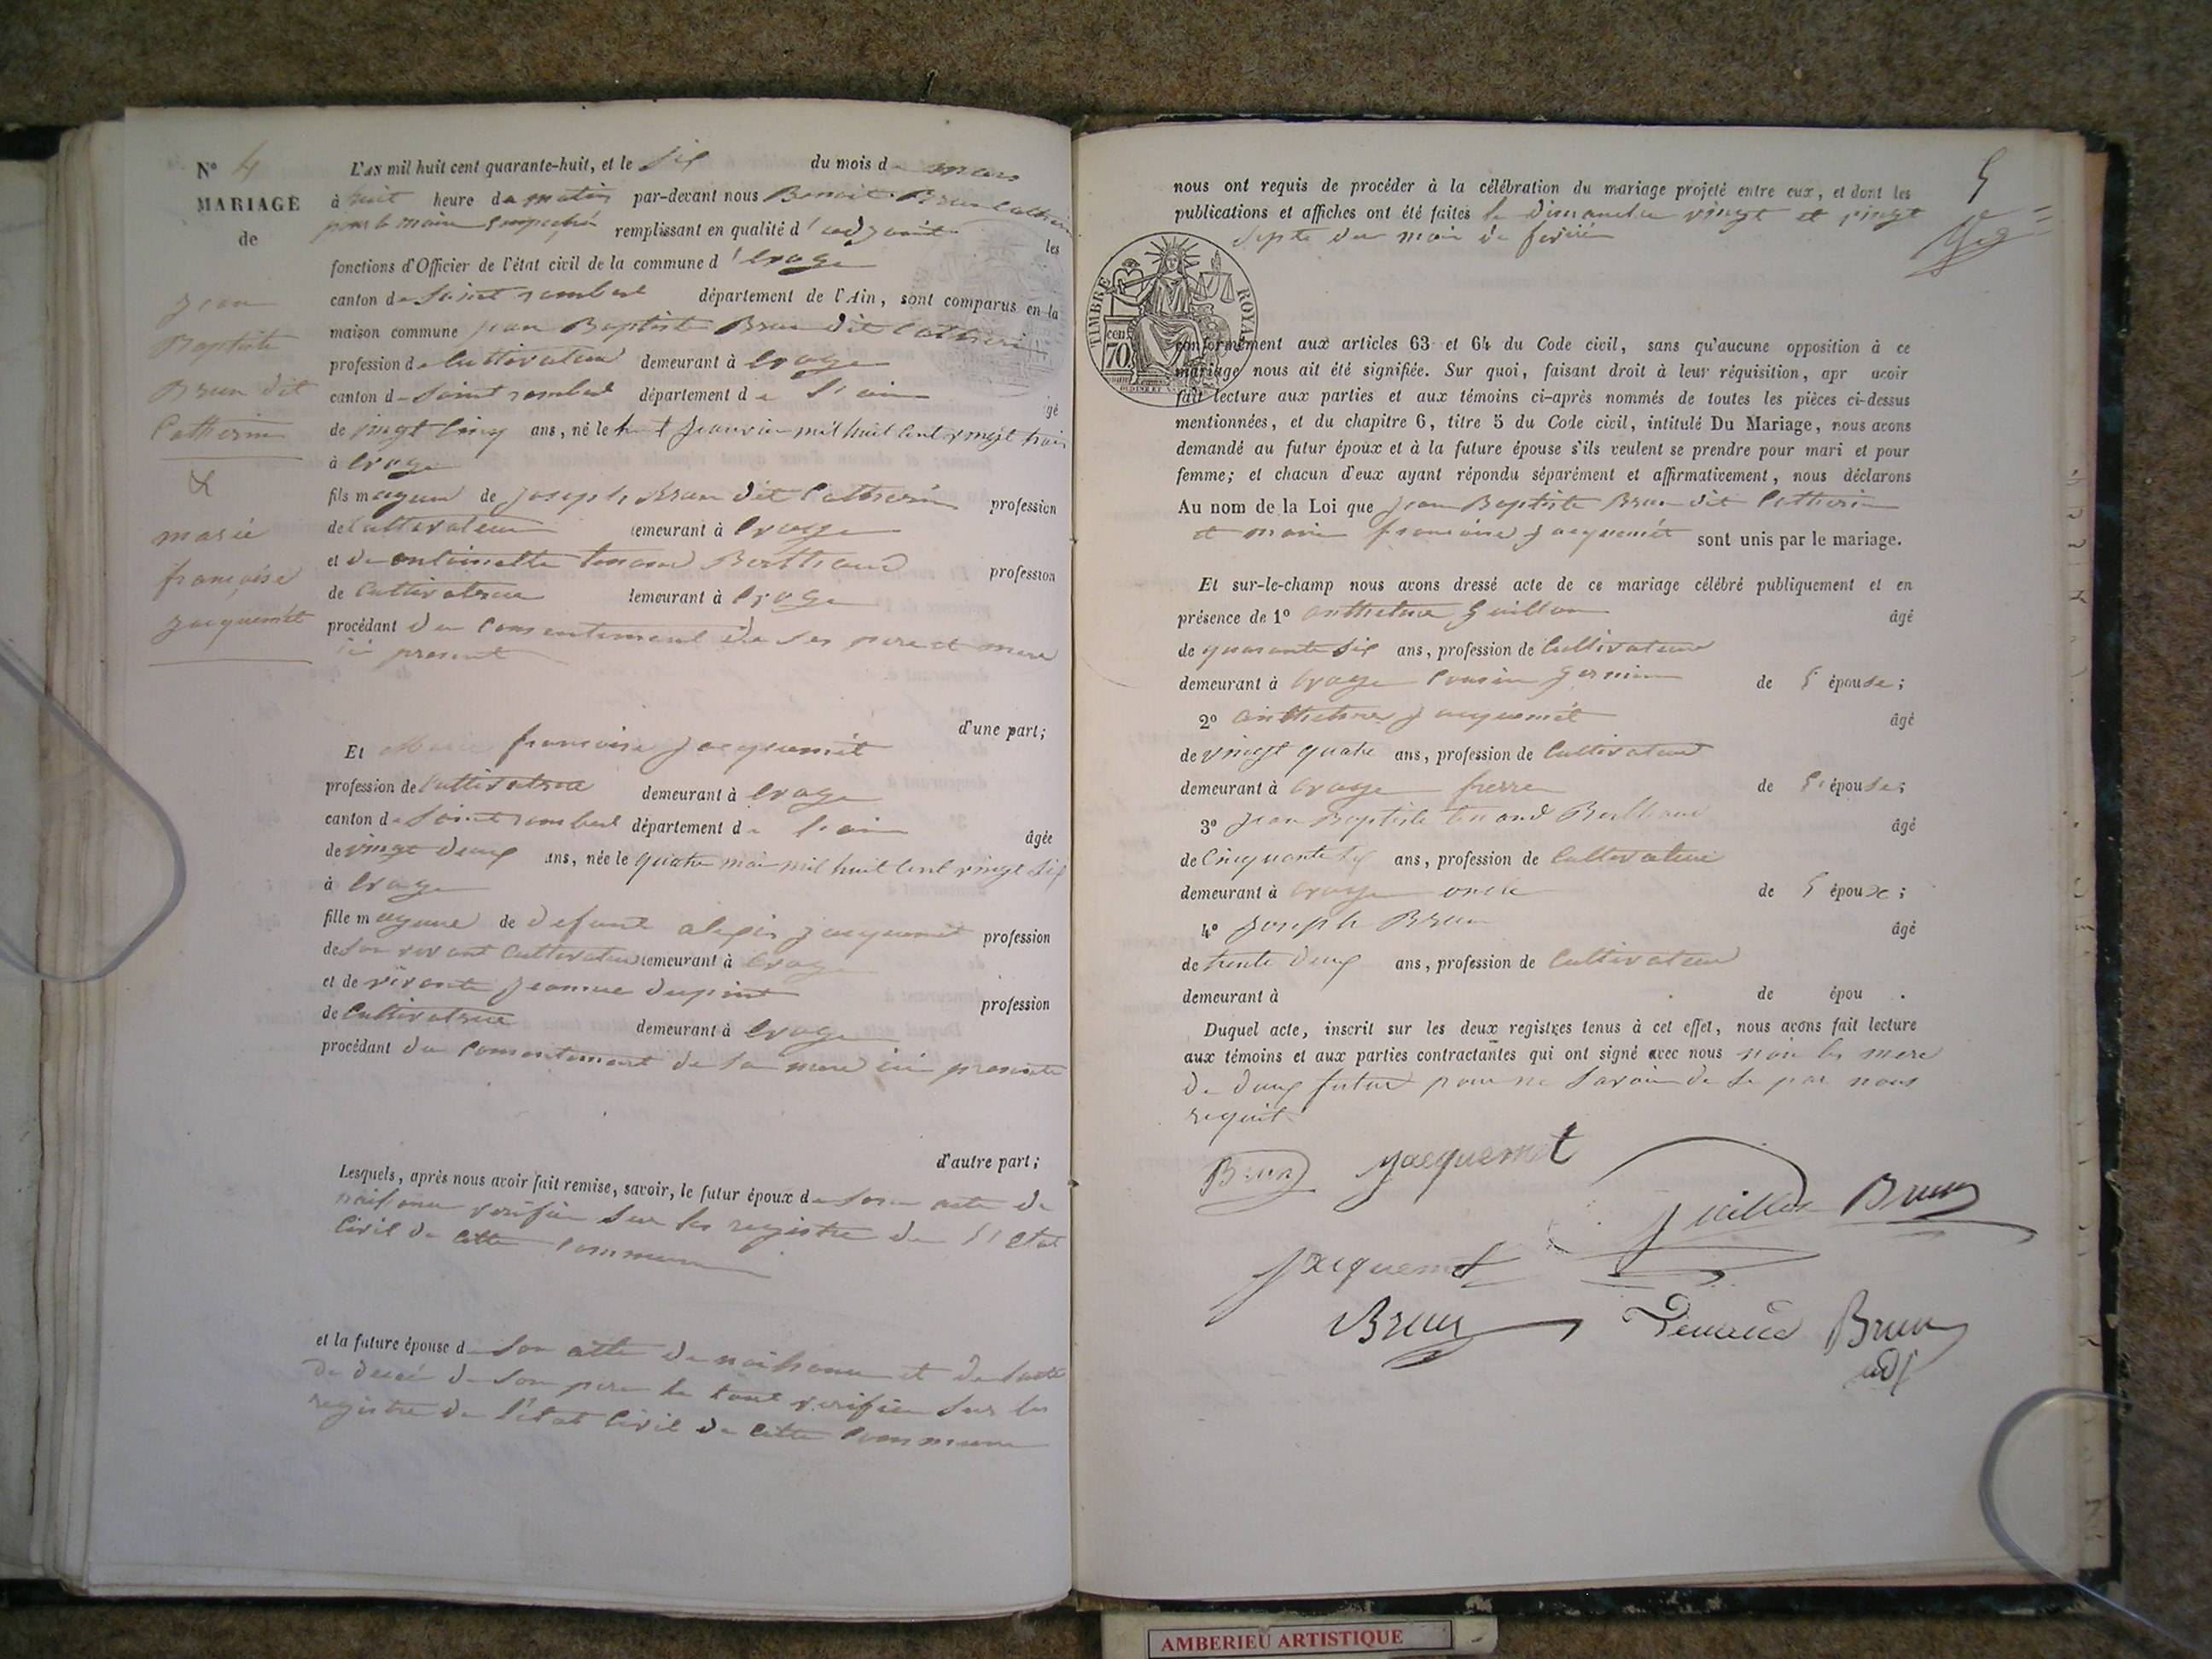 N° 4
MARIAGE
de
Jean
Baptiste
Brun dit
Catherin
&
marie
françoise
jacquemet
L'AN mil huit cent quarante-huit, et le six du mois de mars
à huit heure du matin par-devant nous Benoit Brun Catherin
pour le maire empeché remplissant en qualité d'adjoint les
fonctions d'Officier de l'état civil de la commune d'
canton de Saint rambert département de l'Ain, sont comparus en la
maison commune jean Baptiste Brun dit Catherin
profession de Cultivateur demeurant à
canton de Saint rambert département de l'ain âgé
de vingt Cinq ans, né le huit janvier mil huit Cent vingt trois
à
fils mageur de joseph Brun dit Catherin profession
de Cultivateur demeurant à
et de antoinette tenand Berthand profession
de Cultivatrice demeurant à
procédant du Consentement de ses pere et mere
ici present
d'une part;
Et Marie françoise jacquemet
profession de Cultivatrice demeurant à
canton de Saint rambert département de l'ain âgée
de vingt deux ans, née le quatre mai mil huit Cent vingt six
à
fille mageure de defunt alexis jacquemet profession
de son vivant Cultivateur demeurant à
et de vivante jeanne dupont profession
de Cultivatrice demeurant à
procédant du Consentement de sa mere ici presente
d'autre part;
Lesquels, après nous avoir fait remise, savoir, le futur époux de son acte de
naissance verifié sur les registre de l'etat
Civil de Cette Commune
et la future épouse de son acte de naissance et de l'acte
de décés de son pere le tout verifier sur les
registre de l'état Civil de Cette Commune
5
nous ont requis de procéder à la célébration du mariage projeté entre eux, et dont les
publications et affiches ont été faites le dimanche vingt et vingt
septe du mois de
TIMBRE ROYAL
cen. 70
conformément aux articles 63 et 64 du Code civil, sans qu'aucune opposition à ce
mariage nous ait été signifiée. Sur quoi, faisant droit à leur réquisition, apr avoir
fait lecture aux parties et aux témoins ci-après nommés de toutes les pièces ci-dessus
mentionnées, et du chapitre 6, titre 5 du Code civil, intitulé Du Mariage, nous avons
demandé au futur époux et à la future épouse s'ils veulent se prendre pour mari et pour
femme; et chacun d'eux ayant répondu séparément et affirmativement, nous déclarons
Au nom de la Loi que jean Baptiste Brun dit Catherin
et marie françoise jacquemet sont unis par le mariage.
Et sur-le-champ nous avons dressé acte de ce mariage célébré publiquement et en
présence de 1° anthelme Guillon âgé
de quarante six ans, profession de Cultivateur
demeurant à Cousin germin de l'épouse;
2° anthelme jacquemet âgé
de vingt quatre ans, profession de Cultivateur
demeurant à frerre de l'épouse;
3° jean Baptiste tenand Berthand âgé
de Cinquante six ans, profession de Cultivateur
demeurant à oncle de l'époux;
4° joseph Brun âgé
de trente deux ans, profession de Cultivateur
demeurant à de épou .
Duquel acte, inscrit sur les deux registres tenus à cet effet, nous avons fait lecture
aux témoins et aux parties contractantes qui ont signé avec nous non les mere
de deux futur pour ne savoir de se par nous
requit
Brun Jacquemet
Guillon Brun
Jacquemet
Brun Tenand Brun
adj
AMBERIEU ARTISTIQUE